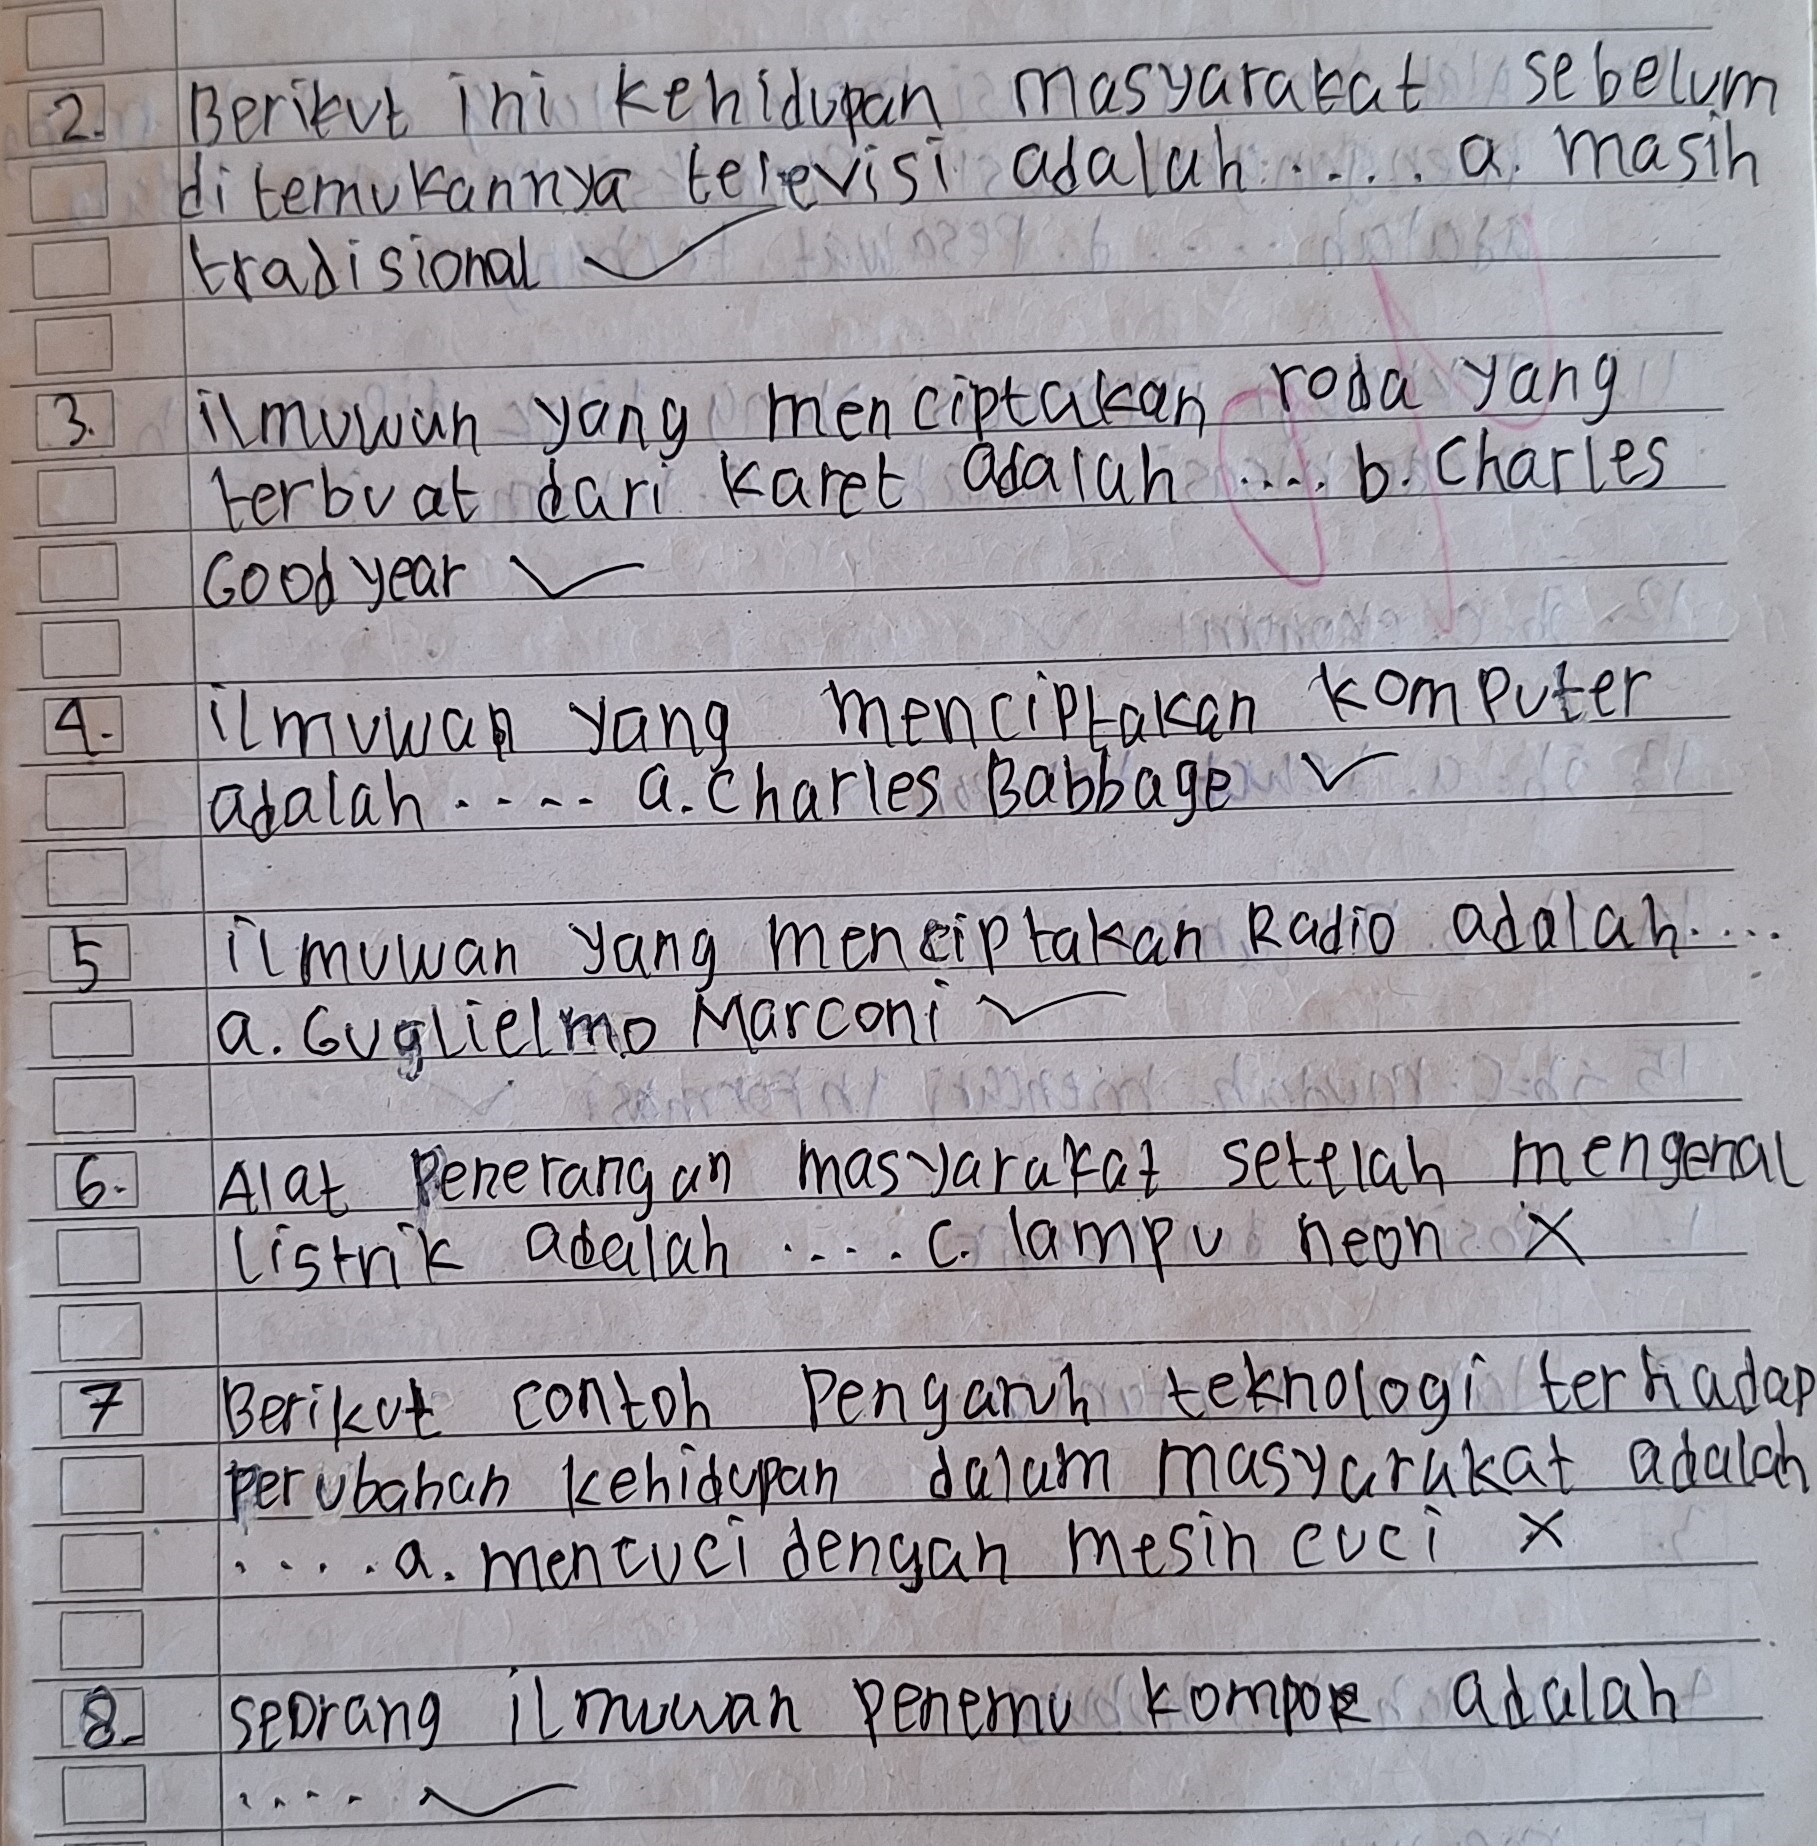 2. Berikut ini kehidupan masyarakat sebelum
ditemukannya televisi adalah .... a. masih
tradisional ✓
3. ilmuwan yang menciptakan roda yang
terbuat dari karet adalah .... b. Charles
Goodyear ✓
4. ilmuwan yang menciptakan komputer
adalah .... a. Charles Babbage ✓
5 ilmuwan yang menciptakan Radio adalah ....
a. Guglielmo Marconi ✓
6. Alat Penerangan masyarakat setelah mengenal
listrik adalah .... c. lampu neon X
7 Berikut contoh Pengaruh teknologi terhadap
perubahan kehidupan dalam masyarakat adalah
.... a. mencuci dengan mesin cuci X
8. seorang ilmuwan penemu kompor adalah
.... ✓